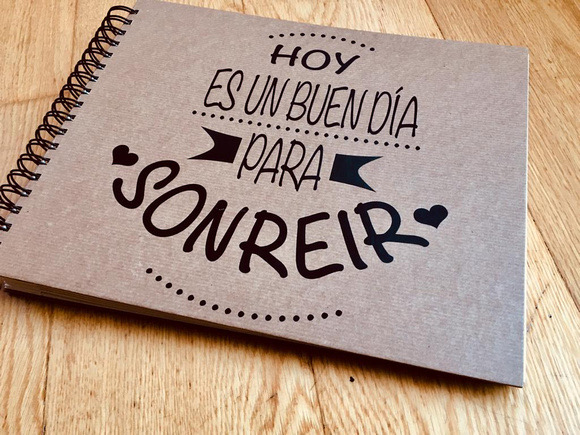 HOY
ES UN BUEN DÍA
PARA
SONREIR